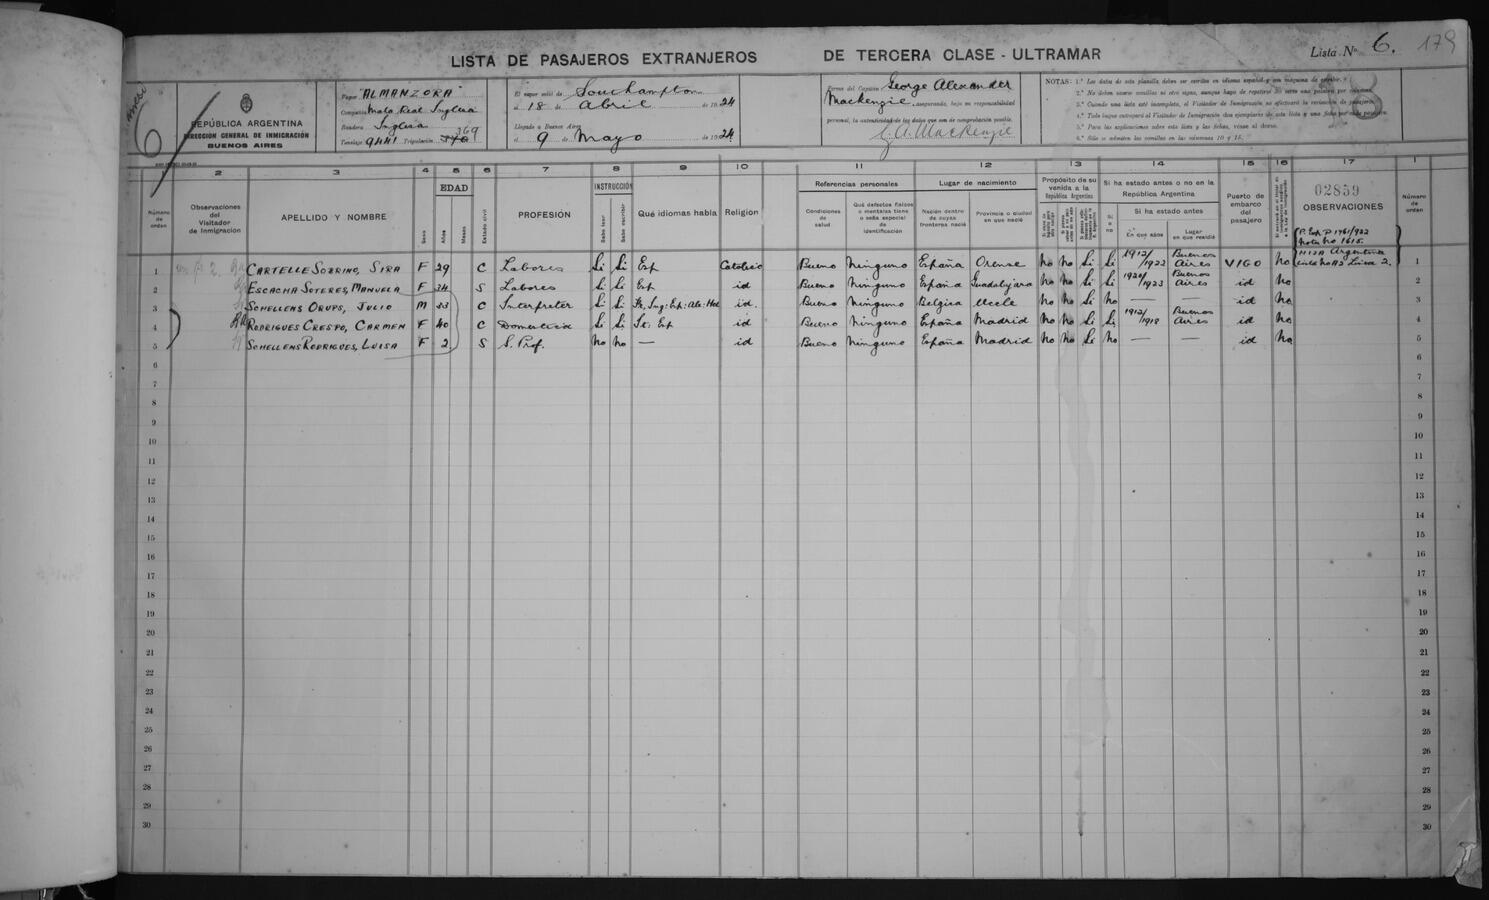 LISTA DE PASAJEROS EXTRANJEROS DE TERCERA CLASE - ULTRAMAR
Lista Nº 6. 179
6
REPÚBLICA ARGENTINA
DIRECCION GENERAL DE INMIGRACIÓN
BUENOS AIRES
Vapor "ALMANZORA"
Compañía Mala Real Inglesa
Bandera Inglesa
369
Tonelaje 9441 Tripulación 370
El vapor salió de Southampton
el 18 de Abril de 1924
Llegado a Buenos Aires
el 9 de Mayo de 1924
Firma del Capitán George Alexander
Mackenzie, asegurando, bajo mi responsabilidad
personal, la autenticidad de los datos que son de comprobación posible.
G. A. MacKenzie
NOTAS: 1.ª Los datos de esta planilla deben ser escritos en idioma español y con máquina de escribir.
2.ª No deben usarse comillas ni otro signo, aunque haya de repetirse
3.ª Cuando una lista esté incompleta, el Visitador de Inmigración no efectuará la revisación de pasajeros.
4.ª Todo buque entregará al Visitador de Inmigración dos ejemplares de esta lista y una ficha por cada pasajero.
5.ª Para las explicaciones sobre esta lista y las fichas, véase al dorso.
6.ª Sólo se admiten las comillas en las columnas 10 y 15.
2 3 4 5 6 7 8 9 10 11 12 13 14 15 16 17 1
Número de orden
Observaciones del Visitador de Inmigración
APELLIDO Y NOMBRE
Sexo
EDAD
Años
Meses
Estado civil
PROFESIÓN
INSTRUCCIÓN
Sabe leer
Sabe escribir
Qué idiomas habla
Religion
Referencias personales
Condiciones de salud
Qué defectos físicos o mentales tiene o seña especial de identificación
Lugar de nacimiento
Nación dentro de cuyas fronteras nació
Provincia o ciudad en que nació
Propósito de su venida a la República Argentina
Si ha estado antes o no en la República Argentina
Si o no
Si ha estado antes
En que años
Lugar en que residió
Puerto de embarco del pasajero
02859
OBSERVACIONES
Número de orden
1 CARTELLE SOBRINO, SIRA F 29 C Labores Si Si Esp Catolico Bueno Ninguno España Orense No No Si Si 1912/1922 Buenos Aires VIGO No 1
2 ESCACHA SOTERES, MANUELA F 34 S Labores Si Si Esp id Bueno Ninguno España Guadalajara No No Si Si 1920/1923 Buenos Aires id No 2
3 SCHELLENS ORUPS, JULIO M 33 C Interpreter Si Si Fr: Ing: Esp: Ale: Hol id. Bueno Ninguno Belgica Uccle No No Si No — — id No 3
4 RODRIGUES CRESPO, CARMEN F 40 C Domestica Si Si Fr: Esp id Bueno Ninguno España Madrid No No Si Si 1912/1918 Buenos Aires id No 4
5 SCHELLENS RODRIGUES, LUISA F 2 S S. Prof. No No — id Bueno Ninguno España Madrid No No Si No — — id No 5
6 6
7 7
8 8
9 9
10 10
11 11
12 12
13 13
14 14
15 15
16 16
17 17
18 18
19 19
20 20
21 21
22 22
23 23
24 24
25 25
26 26
27 27
28 28
29 29
30 30